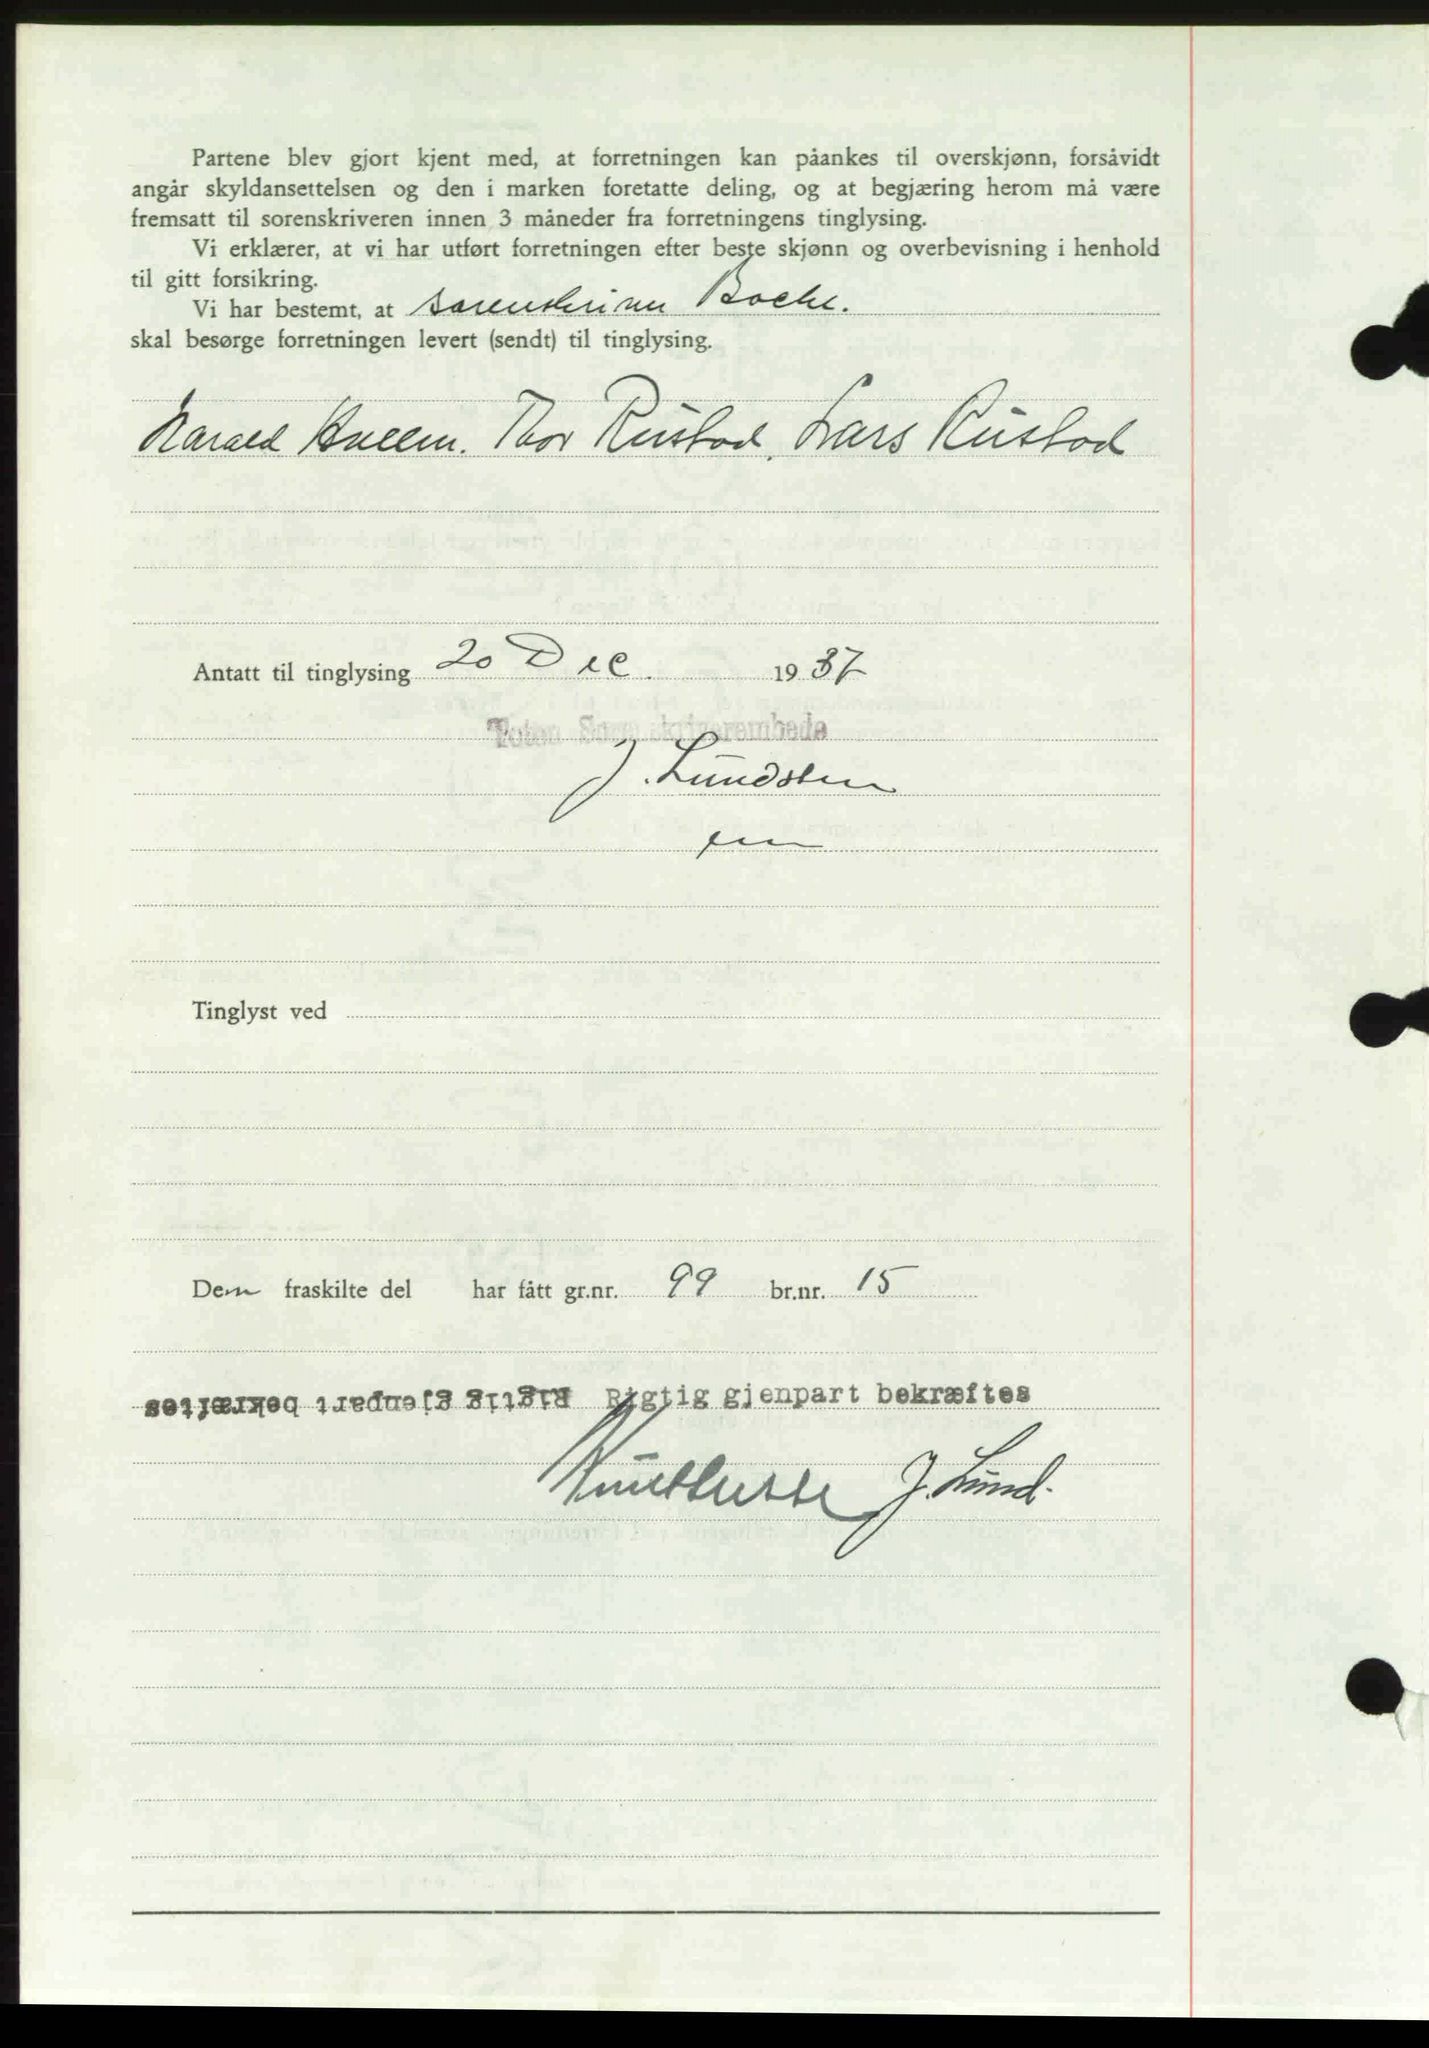 Partene blev gjort kjent med, at forretningen kan påankes til overskjønn, forsåvidt
angår skyldansettelsen og den i marken foretatte deling, og at begjæring herom må være
fremsatt til sorenskriveren innen 3 måneder fra forretningens tinglysing.
Vi erklærer, at vi har utført forretningen efter beste skjønn og overbevisning i henhold
til gitt forsikring.
Vi har bestemt, at sorenskriver
skal besørge forretningen levert (sendt) til tinglysing.
Harald Thor Rustad. Lars Rustad
Antatt til tinglysing 20 Dec. 1937
Toten Sorenskriverembede
J. Lundsten
Tinglyst ved
Den fraskilte del har fått gr.nr. 99 br.nr. 15
Rigtig gjenpart bekræftes Rigtig gjenpart bekræftes
J. Lund.